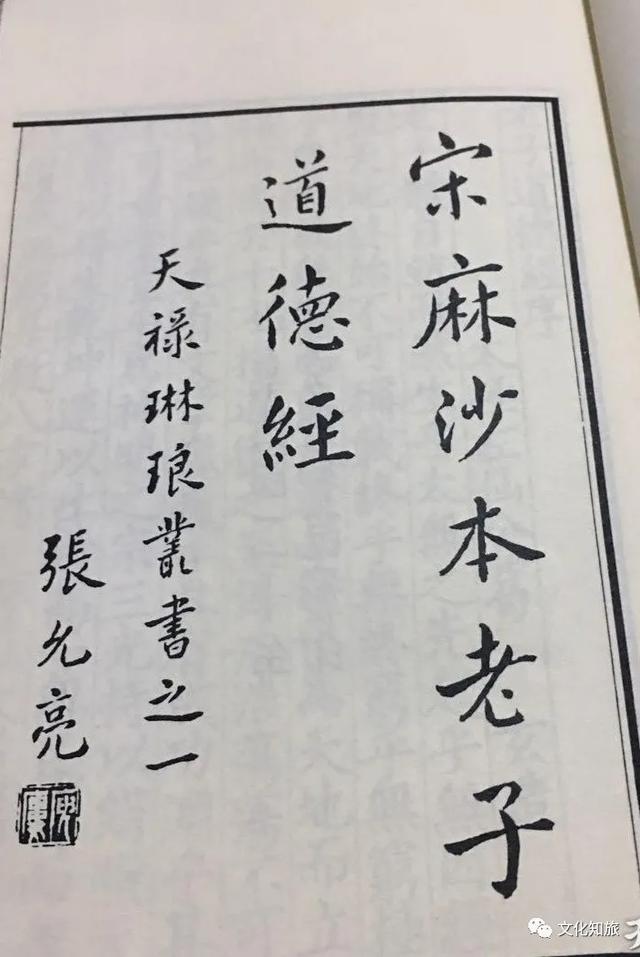 宋麻沙本老子
道德經
天禄琳琅叢書之一
張允亮
文化知旅